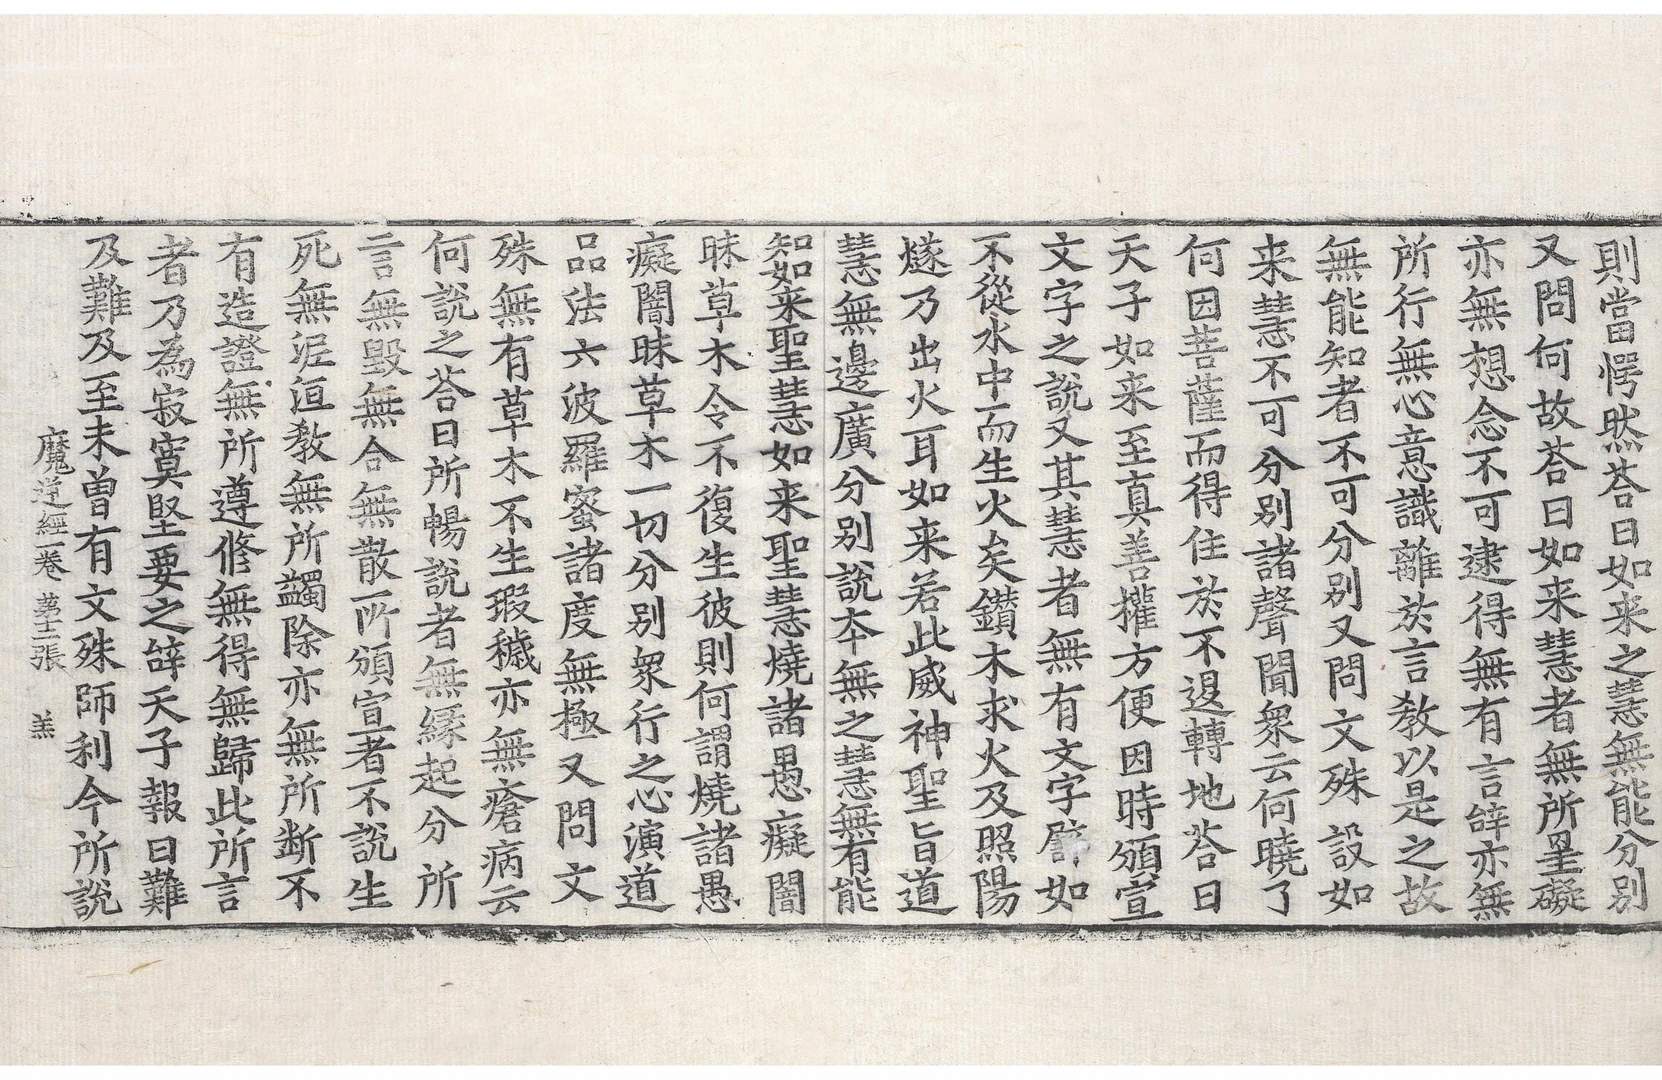 則當愕然荅曰如来之慧無能分別
又問何故荅曰如来慧者無所罣礙
亦無想念不可逮得無有言辝亦無
所行無心意識離於言教以是之故
無能知者不可分別又問文殊設如
来慧不可分別諸聲聞衆云何曉了
何因菩薩而得住於不退轉地荅曰
天子如来至真善攉方便因時頒宣
文字之說又其慧者無有文字譬如
不從水中而生火矣鑚木求火及照陽
燧乃出火耳如来若此威神聖旨道
慧無邊廣分別說夲無之慧無有能
知如来聖慧如来聖慧燒諸愚癡闇
昧草木令不復生彼則何謂燒諸愚
癡闇昧草木一切分別衆行之心演道
品法六波羅蜜諸度無極又問文
殊無有草木不生瑕穢亦無瘡病云
何說之荅曰所暢說者無緣起分所
言無毀無合無散所頒宣者不說生
死無泥洹教無所蠲除亦無所断不
有造證無所遵修無得無歸此所言
者乃為寂寞堅要之辝天子報曰難
及難及至未曽有文殊師利今所說
魔逆經一卷 苐十二張 羔